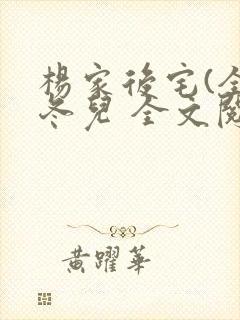 楊家後宅(全
冬兒 全文閱
黃躍華